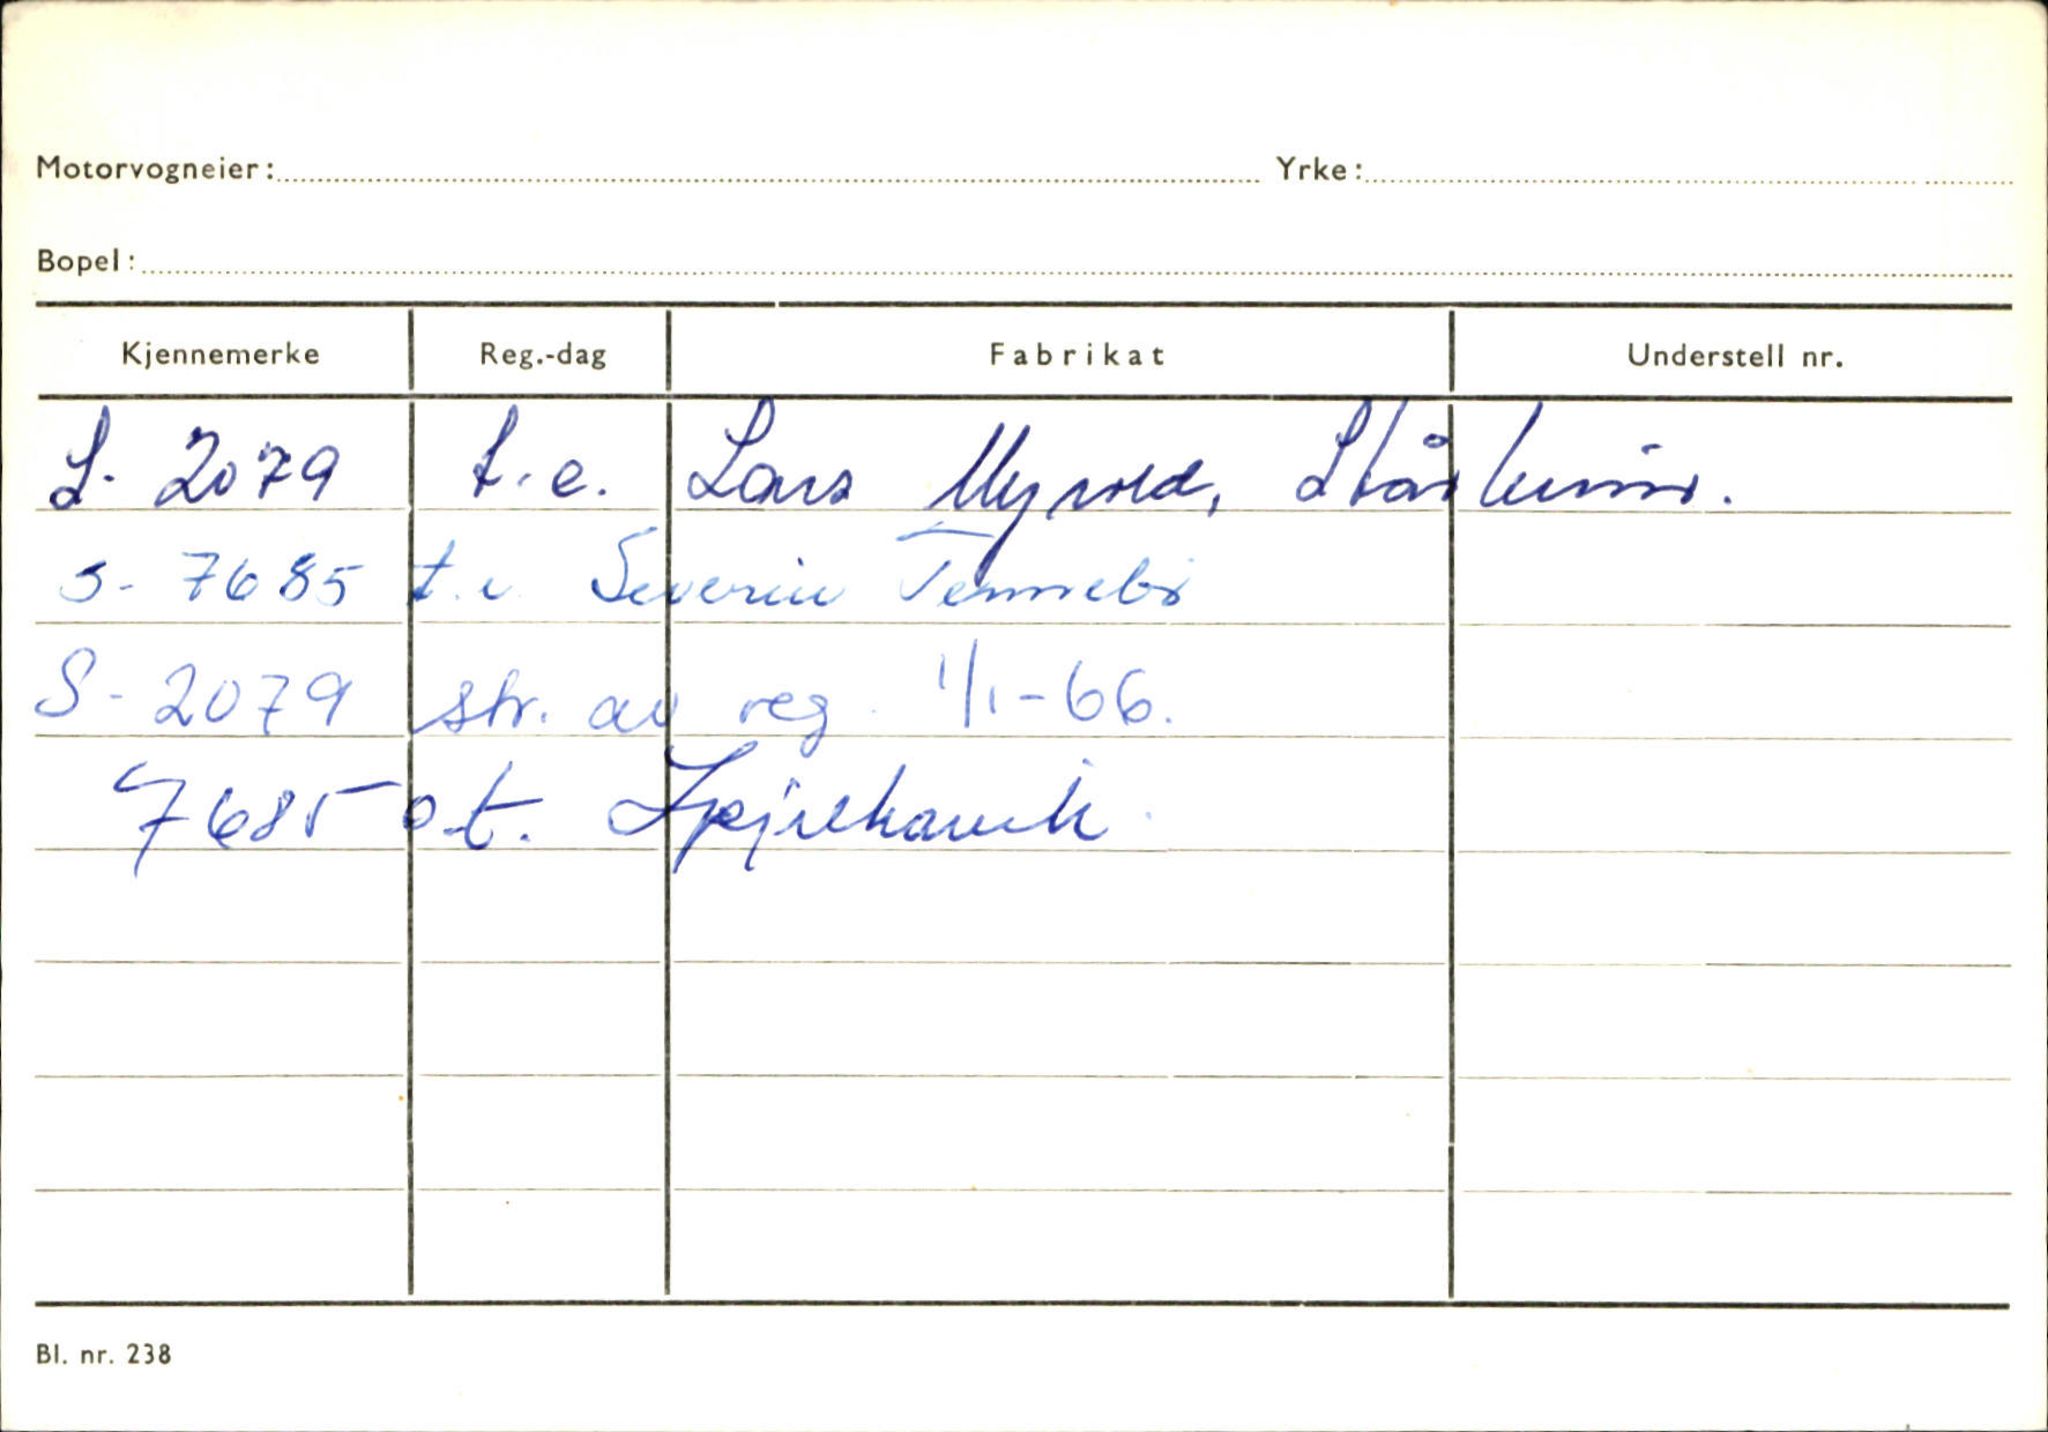 Motorvogneier: Yrke:
Bopel:
Kjennemerke Reg.-dag Fabrikat Understell nr.
S- 2079 t.e. Lars Myrold, Stårheim.
S- 7685 t.e. Severin Tennebø
S- 2079 str. av reg. 1/1-66.
7685 o.t. Spjelkavik
Bl. nr. 238